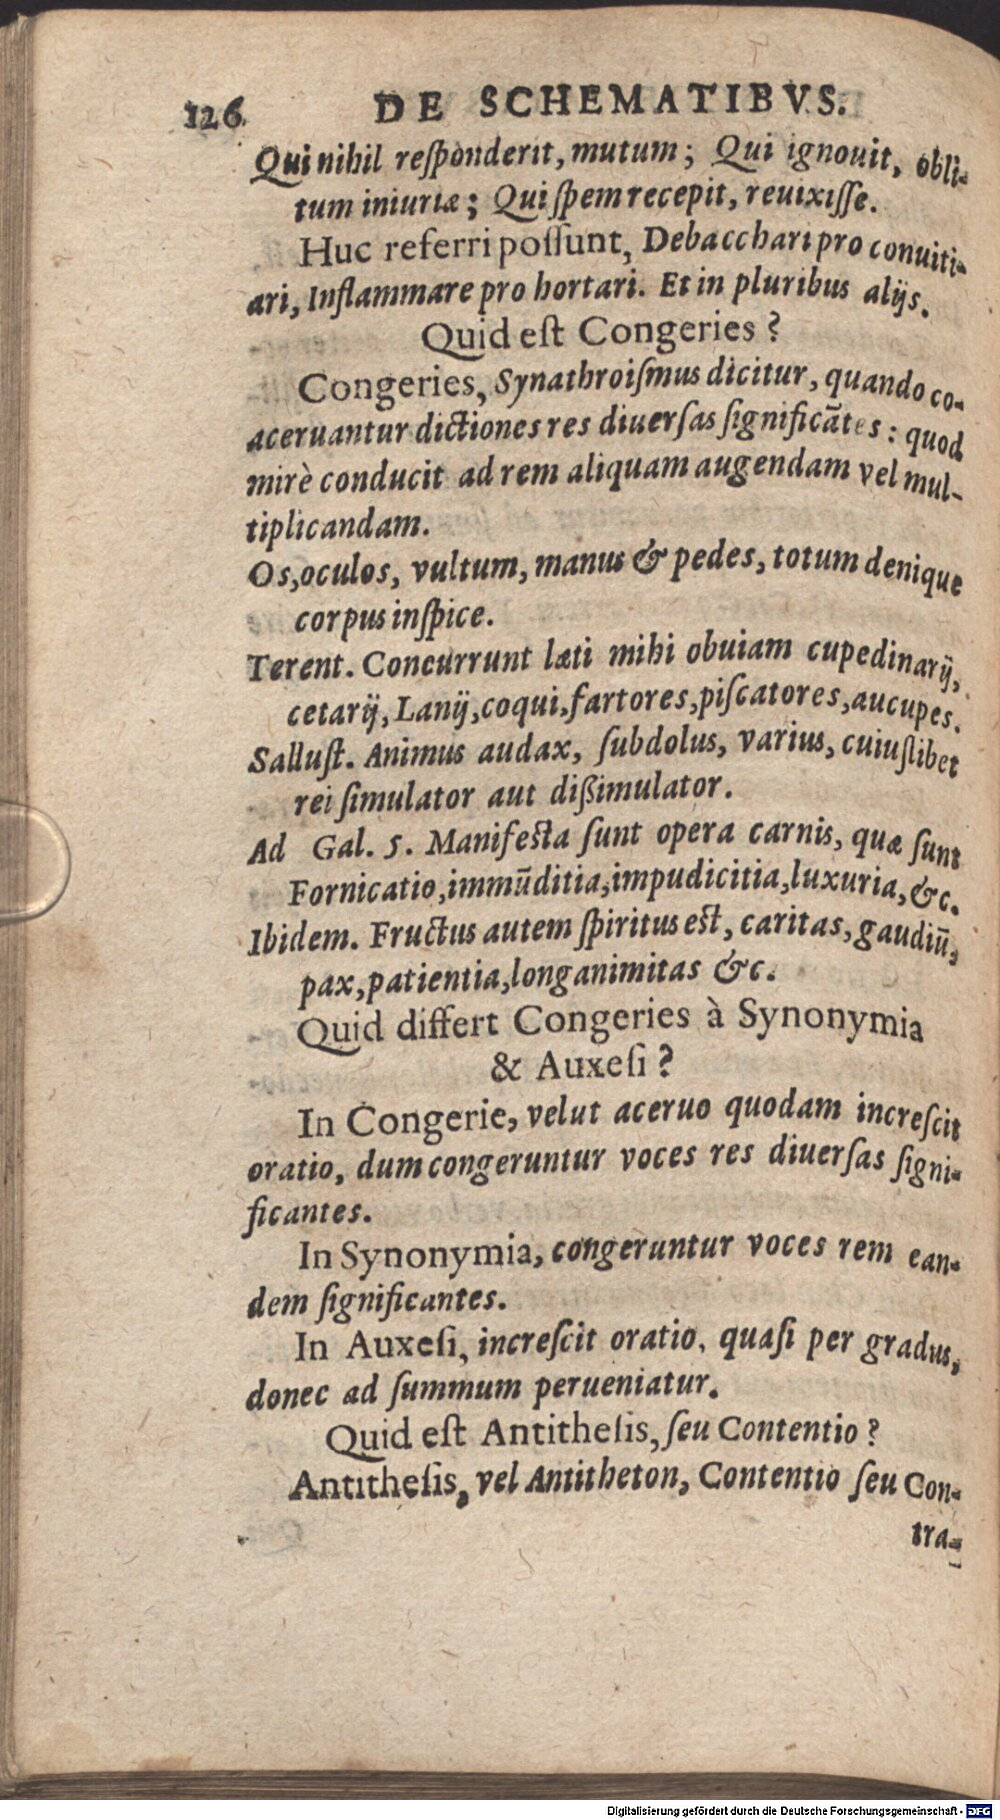 126 DE SCHEMATIBVS.
Qui nihil reſponderit, mutum; Qui ignouit, obli-
tum iniuriæ; Qui ſpem recepit, reuixiſſe.
Huc referri poſſunt, Debacchari pro conuiti-
ari, Inflammare pro hortari. Et in pluribus alijs.
Quid eſt Congeries?
Congeries, Synathroiſmus dicitur, quando co-
aceruantur dictiones res diuerſas ſignificātes: quod
mirè conducit ad rem aliquam augendam vel mul-
tiplicandam.
Os, oculos, vultum, manus & pedes, totum denique
corpus inſpice.
Terent. Concurrunt læti mihi obuiam cupedinarij,
cetarij, Lanij, coqui, fartores, piſcatores, aucupes.
Salluſt. Animus audax, ſubdolus, varius, cuiuſlibet
rei ſimulator aut dißimulator.
Ad Gal. 5. Manifeſta ſunt opera carnis, quæ ſunt
Fornicatio, immūditia, impudicitia, luxuria, &c.
Ibidem. Fructus autem ſpiritus eſt, caritas, gaudiū,
pax, patientia, longanimitas &c.
Quid differt Congeries à Synonymia
& Auxeſi?
In Congerie, velut aceruo quodam increſcit
oratio, dum congeruntur voces res diuerſas ſigni-
ficantes.
In Synonymia, congeruntur voces rem ean-
dem ſignificantes.
In Auxeſi, increſcit oratio, quaſi per gradus,
donec ad ſummum perueniatur.
Quid eſt Antitheſis, ſeu Contentio?
Antitheſis, vel Antitheton, Contentio ſeu Con-
tra-
Digitalisierung gefördert durch die Deutsche Forschungsgemeinschaft - DFG